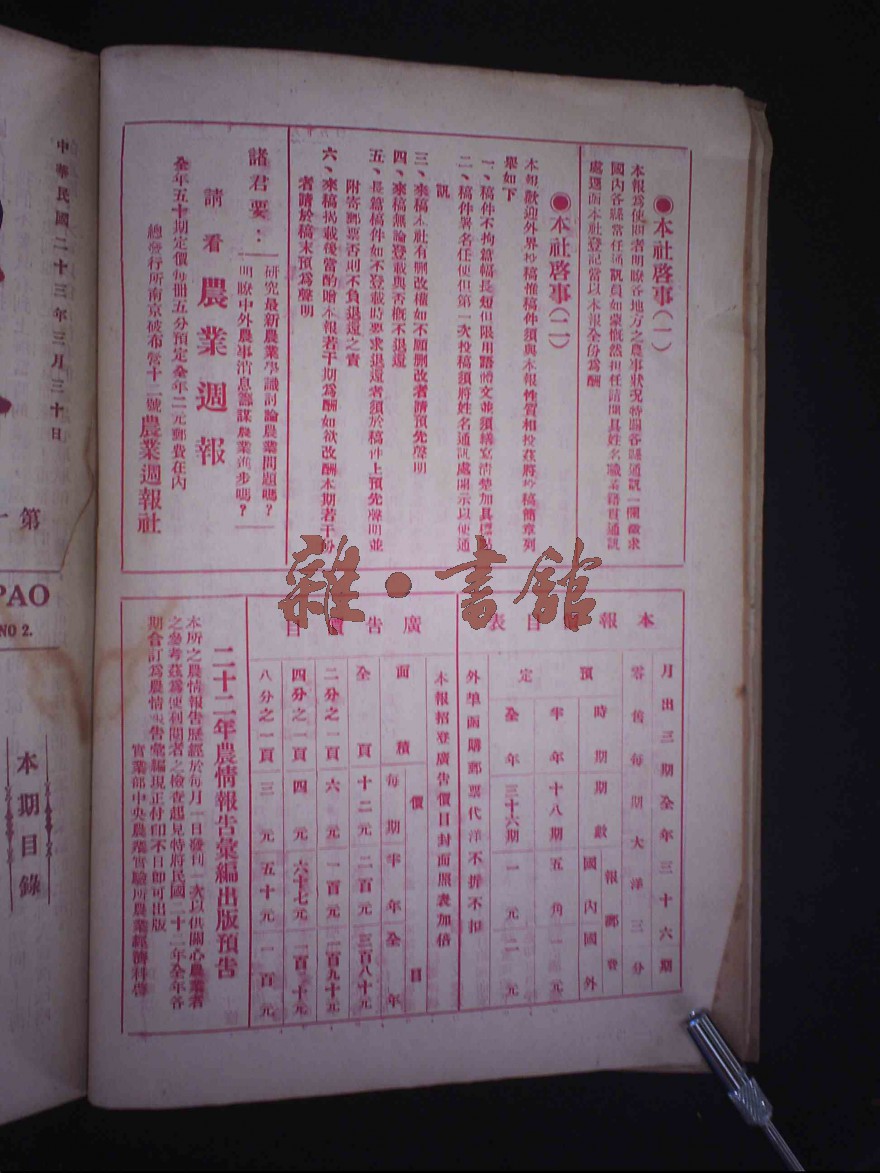 ◉本社啓事(一)
本報爲使閱者明瞭各地方之農事狀況特闢各縣通訊一欄徵求
國內各縣常任通訊員如蒙慨然担任請開具姓名職業籍貫通訊
處逕函本社登記當以本報全份爲酬
◉本社啓事(二)
本報歡迎外界投稿惟稿件須與本報性質相投茲將投稿簡章列
舉如下
一、稿件不拘篇幅長短但限用語體文並須繕寫清楚加具標點
二、稿件署名任便但第一次投稿須將姓名通訊處開示以便通
訊
三、來稿本社有刪改權如不願刪改者請預先聲明
四、來稿無論登載與否概不退還
五、長篇稿件如不登載時要求退還者須於稿件上預先聲明並
附寄郵票否則不負退還之責
六、來稿揭載後當酌贈本報若干期爲酬如欲改酬本期若干份
者請於稿末預爲聲明
諸君要:
研究最新農業學識討論農業問題嗎?
明瞭中外農事消息籌謀農業進步嗎?
請看農業週報
全年五十期定價每冊五分預定全年二元郵費在內
總發行所南京破布營十二號農業週報社
本報價目表
月出三期全年三十六期
零售每期大洋三分
預定
時期 期數 報郵費
國內 國外
半年 十八期 五角 一元
全年 三十六期 一元 二元
外埠函購郵票代洋不折不扣
廣告價目
本報招登廣告價目封面照表加倍
面積 價目
每期 半年 全年
全頁 十二元 二百元 三百八十元
二分之一頁 六元 一百元 一百九十元
四分之一頁 四元 六十七元
八分之一頁 三元 五十元 一百元
二十二年農情報告彙編出版預告
本所之農情報告歷經於每月一日發刊一次以供關心農業者
之參考茲爲使利閱者之檢查起見特將民國二十二年全年各
期合訂爲農情報告彙編現正付印不日即可出版
實業部中央農業實驗所農業經濟科啓
中華民國二十三年三月三十日
第一
PAO
NO 2.
本期目錄
雜·書館